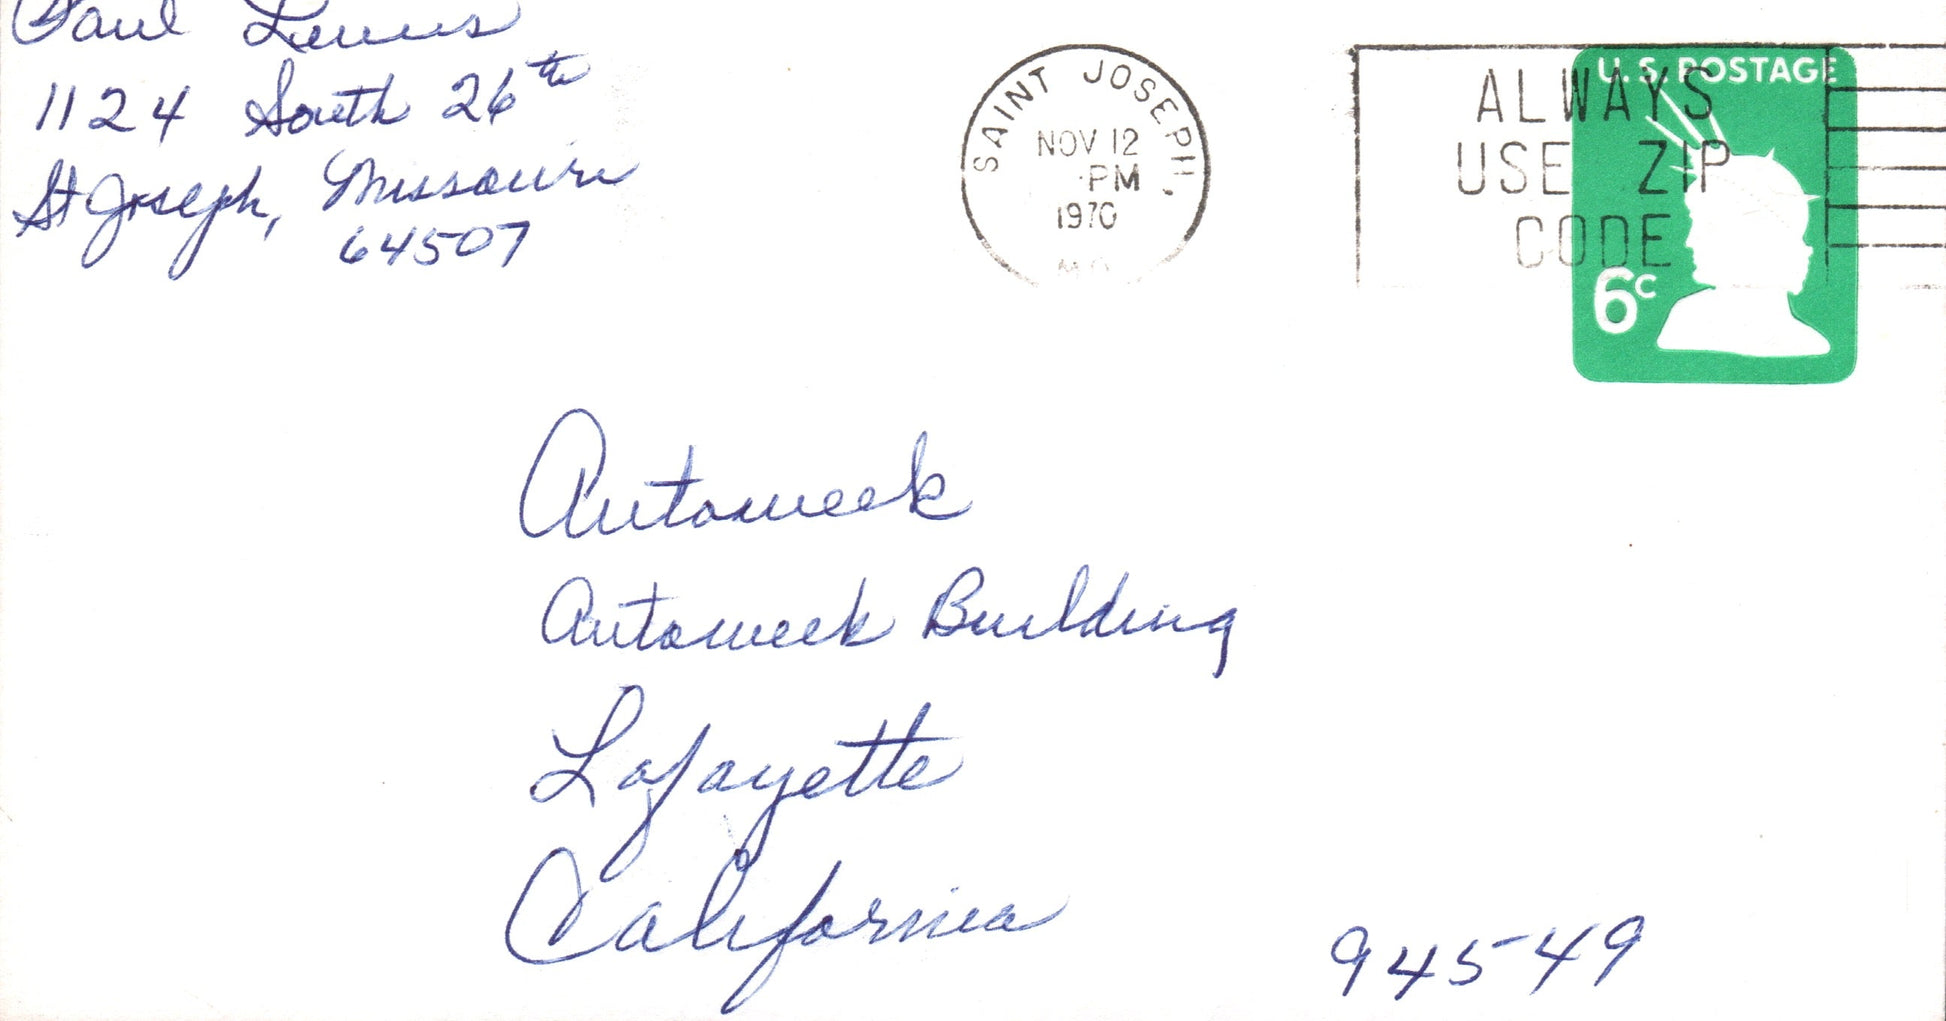 Paul Lewis
1124 South 26th
St Joseph, Missouri
64507
SAINT JOSEPH,
MO
NOV 12
PM
1970
ALWAYS
USE ZIP
CODE
U.S. POSTAGE
6c
Autoweek
Autoweek Building
Lafayette
California
94549